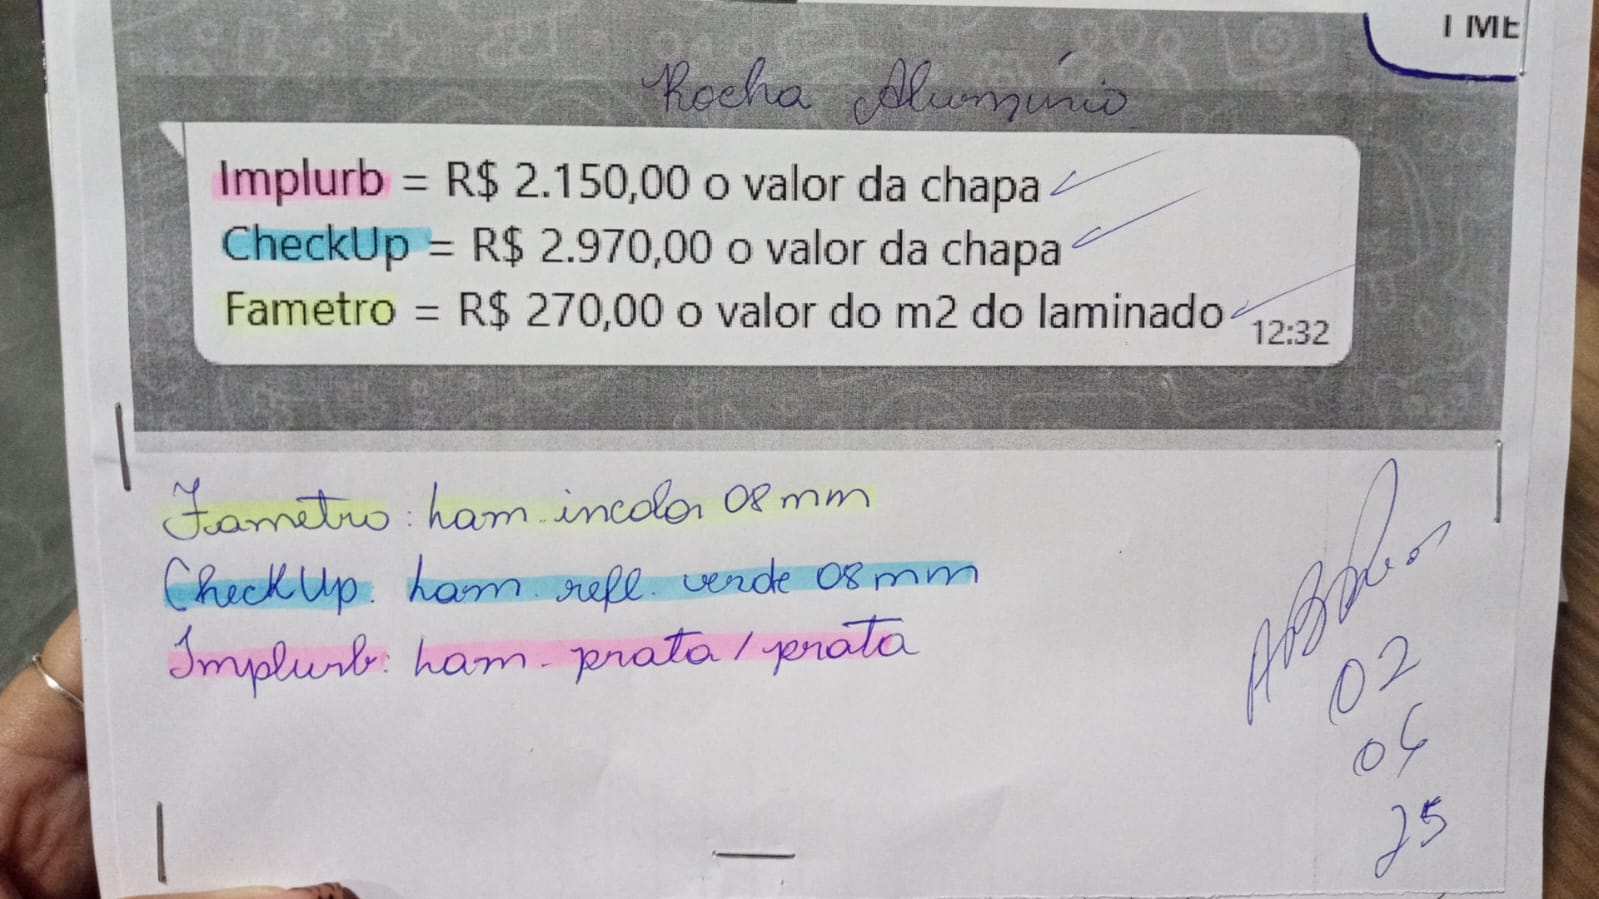 I ME
Rocha Alumínio
Implurb = R$ 2.150,00 o valor da chapa
CheckUp = R$ 2.970,00 o valor da chapa
Fametro = R$ 270,00 o valor do m2 do laminado
12:32
Fametro: lam. incolor 08 mm
CheckUp. lam. refl. verde 08 mm
Implurb: lam. prata / prata
02
04
25